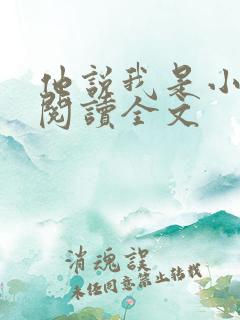 他說我是小
閱讀全文
消魂誤
未经同意禁止转载